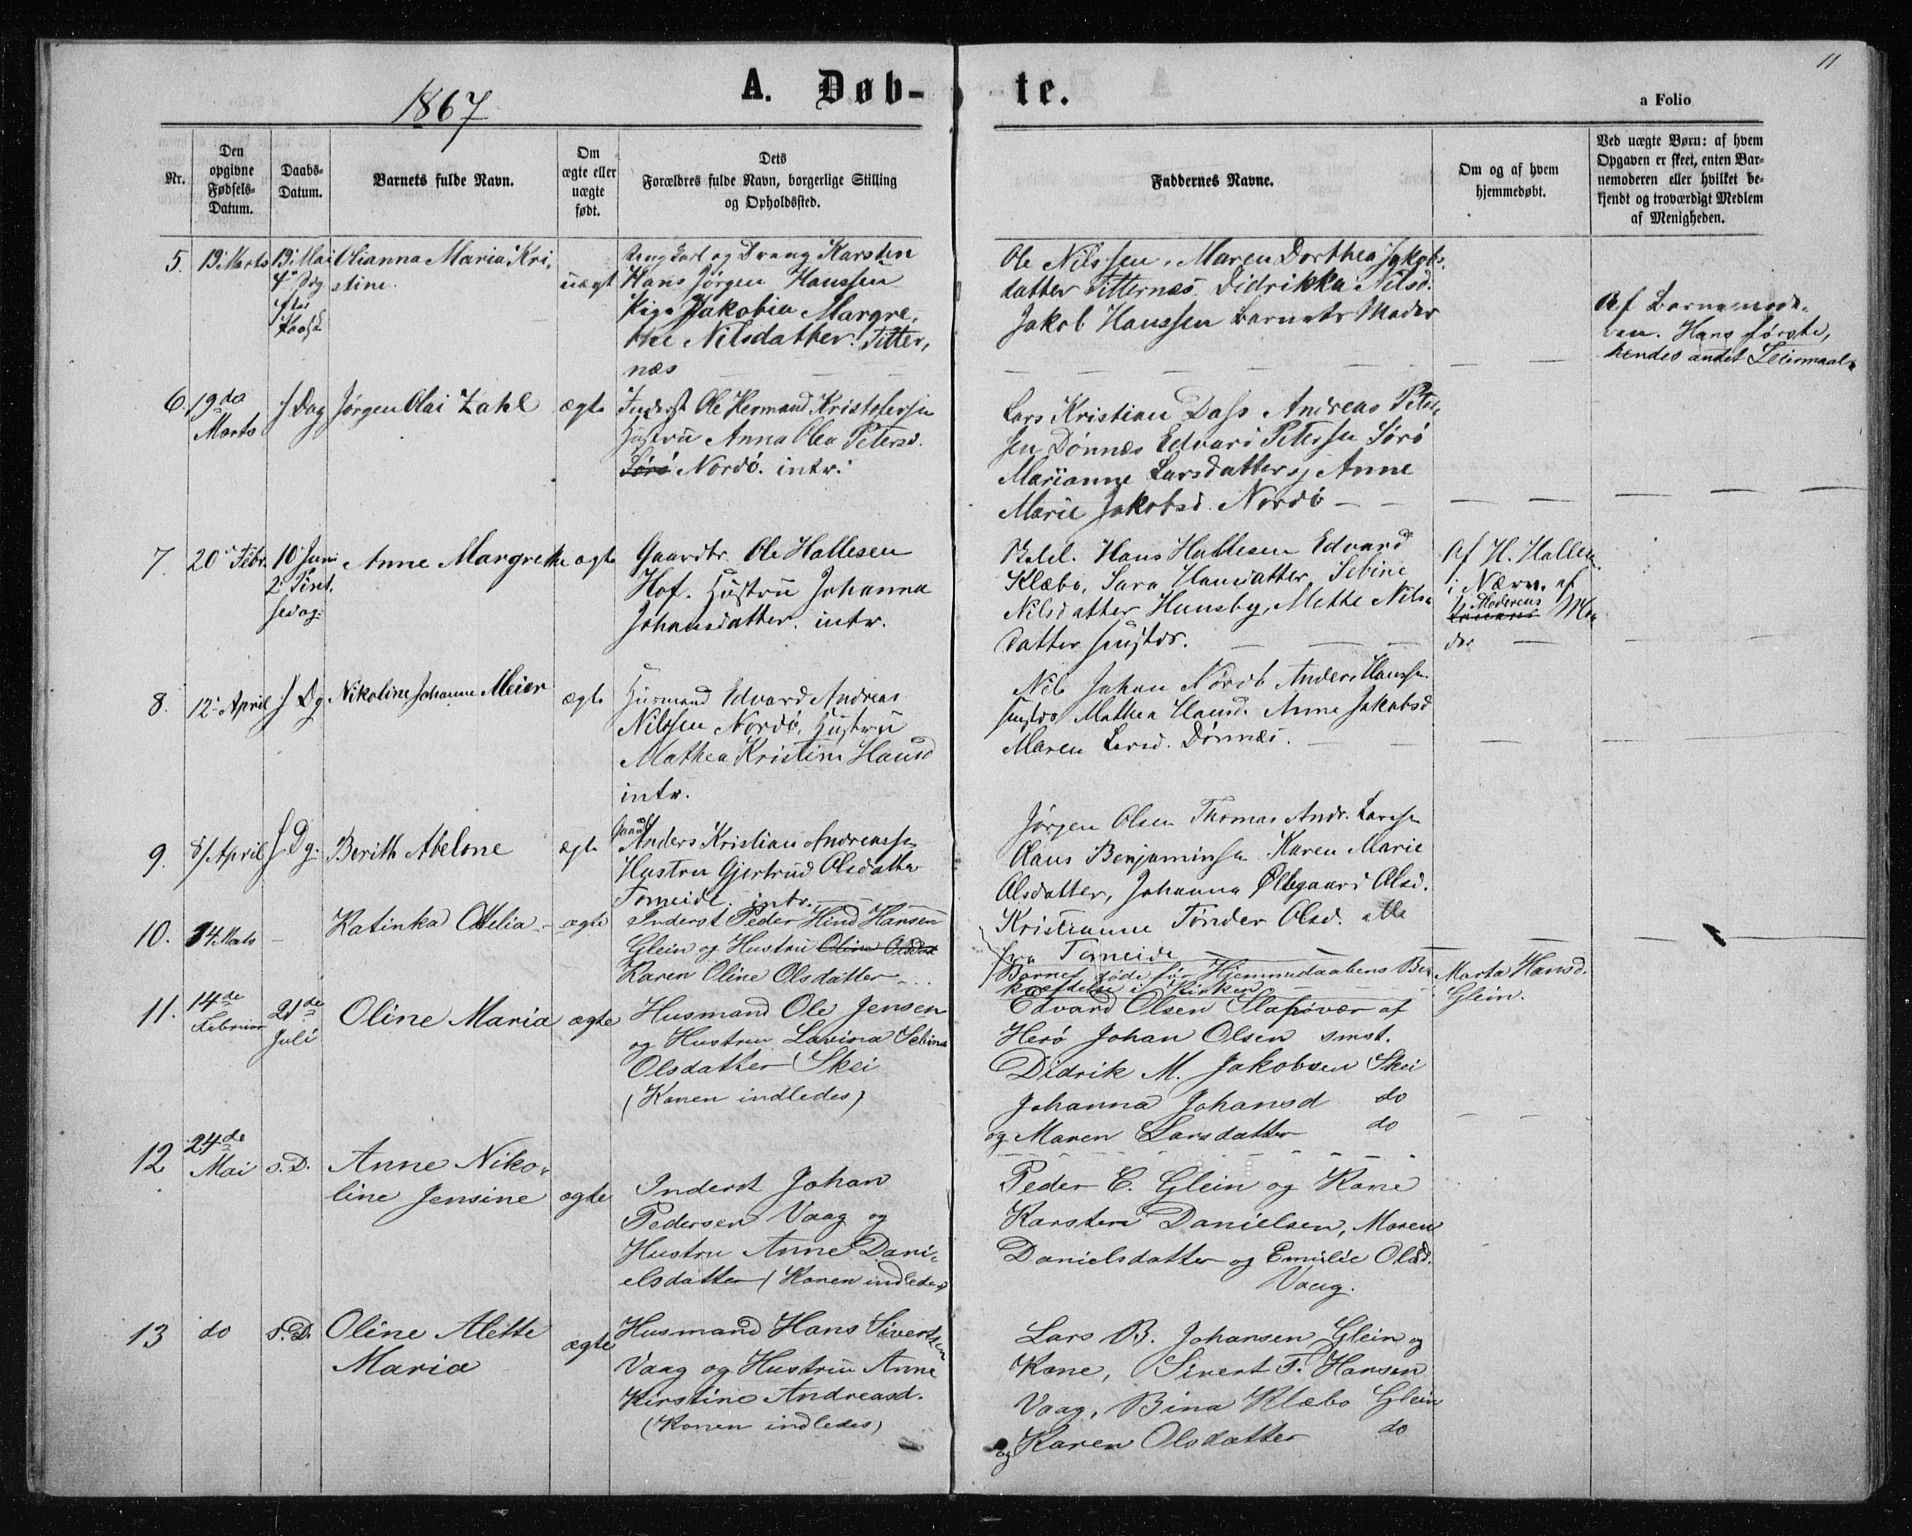 11
1867
A. Døb-
te.
a Folio
Nr.
Den
opgivne
Fødsels-
Datum.
Daabs-
Datum.
Barnets fulde Navn.
Om
ægte eller
uægte
født.
Dets
Forældres fulde Navn, borgerlige Stilling
og Opholdssted.
Faddernes Navne.
Om og af hvem
hjemmedøbt.
Ved uægte Børn: af hvem
Opgaven er skeet, enten Bar-
nemoderen eller hvilket be-
kjendt og troværdigt Medlem
af Menigheden.
5. 19. Marts 19. Mai Olianna Maria Kri-
stine.
uægt
Ungkarl og Dreng Karsten
Hans Jørgen Hanssen
Pige Jakobia Margre,
the Nilsdatter. Titter,
næs
Ole Nilssen, Maren Dorthea Jakobs,
datter Titternæs Didrikka Nilsd.
Jakob Hanssen Barnets Moder
Af Barnemode-
ren. Hans første,
hendes andet Leiermaal
6. 19de
Marts
s Dag Jørgen Olai Zahl ægte
Inderst Ole Hermand Kristofersen
Hustru Anna Olea Petersd.
Sørø Nordø. intr.
Lars Kristian Dass Andreas Peter-
sen Dønnæs Edvard Peterssen Sørø
Marianne Larsdatter Anne
Marie Jakobsd. Nordø
7. 20. Febr. 10 Juni
2. Pint,
sedag
Anne Margrethe ægte
Gaardbr. Ole Hallesen
Hof. Hustru Johanna
Johansdatter. intr.
Hans Hallesen Edvard
Klæbo, Sara Hansdatter, Sebine
Nilsdatter Hunsby, Mette Nils-
datter
Af H. Hallen
i Nærv. af
Moderens Mo,
der
8. 12. April s Dg Nikoline Johanne Meier ægte
Husmand Edvard Andreas
Nilssen Nordø, Hustru
Mathea Kristine Hansd
intr.
Nils Johan Nordø Anders Hanssen
Mathea Hansd. Anne Jakobsd
Maren Larsd. Dønnæs.
9. 8/ April s Dg. Berith Abelone ægte
Gaardb
Anders Kristian Andreassen
Hustru Gjertrud Olsdatter
Torneide. intr.
Jørgen Olsen Thomas Andr. Larsen
Claus Benjaminsen Karen Marie
Olsdatter, Johanna Øllegaard Olsd.
Kristianne Tønder Olsd. alle
fra Torneide
10. 14 Marts – Katinka Otelia – ægte
Inderst Peder Hind Hansen
Glein og Hustru Oline Olsdat
Karen Oline Olsdatter
Barnet døde før Hjemmedaabens Be-
kræftelse i Kirken
Marta Hansd.
Glein.
11. 14de
Februar
21de
Juli
Oline Maria ægte
Husmand Ole Jensen
og Hustru Lavina Sebina
Olsdatter Skei
(Konen indledes)
Edvard Olsen Slapøvær af
Herø Johan Olsen smst.
Didrik M. Jakobsen Skei
Johanna Johansd do
og Maren Larsdatter do
12 24de
Mai
s. D. Anne Niko-
line Jensine
ægte
Inderst Johan
Pedersen Vaag og
Hustru Anne Dani-
elsdatter (Konen indledes)
Peder C. Glein og Kone
Karsten Danielsen, Maren
Danielsdatter og Emilie Olsd.
Vaag.
13 do s. D. Oline Alette
Maria
ægte
Husmand Hans Sivertsen
Vaag og Hustru Anne
Kirstine Andreasd.
(Konen indledes)
Lars B. Johansen Glein og
Kone, Sivert T. Hansen
Vaag, Bina Klæbo Glein
og Karen Olsdatter do